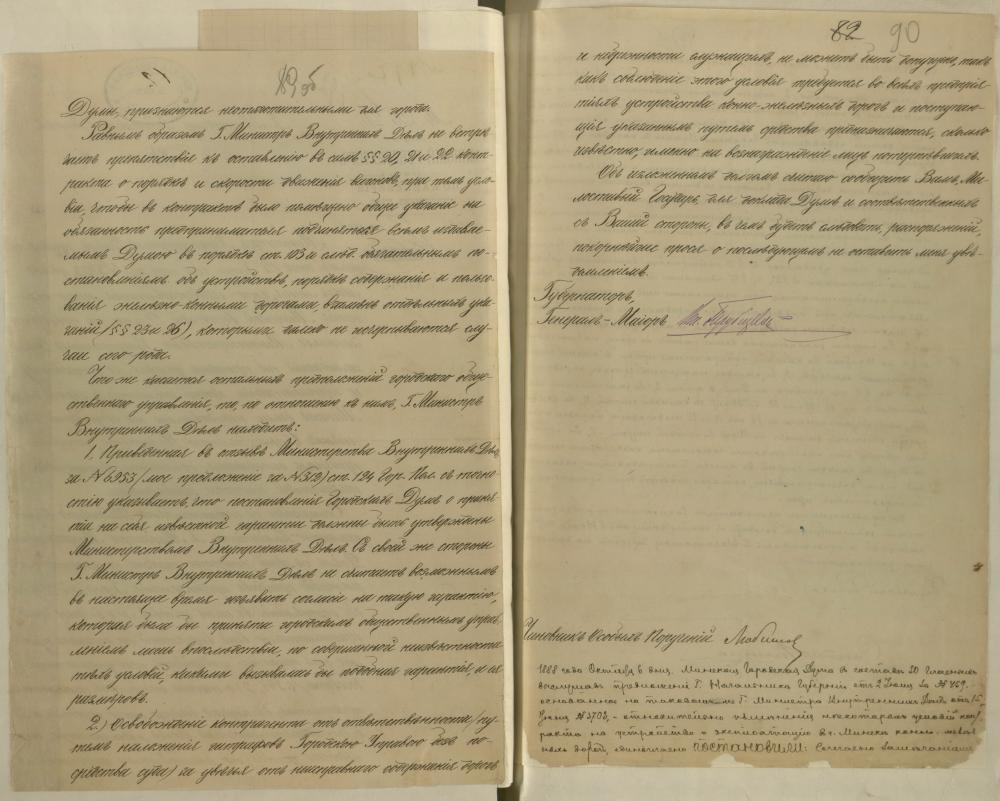 89 об
Думы, признаются неотяготительными для города.
Равнымъ образомъ Г. Министръ Внутреннихъ Дѣлъ не встрѣ-
чаетъ препятствія къ оставленію въ силѣ §§ 20, 21 и 22 конт-
ракта о порядкѣ и скорости движенія вагоновъ, при томъ усло-
віи, чтобы въ контрактѣ было помѣщено общее указаніе на
обязанность предпринимателя подчиняться всѣмъ издавае-
мымъ Думою въ порядкѣ ст. 103 и слѣд. обязательнымъ по-
становленіямъ объ устройствѣ, порядкѣ содержанія и пользо-
ванія желѣзно-конными дорогами, взамѣнъ отдѣльныхъ ука-
заній (§§ 23 и 26), которыми далеко не исчерпываются слу-
чаи сего рода.
Что же касается остальныхъ предположеній городского обще-
ственнаго управленія, то, по отношенію къ нимъ, Г. Министръ
Внутреннихъ Дѣлъ находитъ:
1. Приведенная въ отзывѣ Министерства Внутреннихъ Дѣлъ
за № 6953 /мое предложеніе за № 512/ ст. 124 Гор. Пол. съ точно-
стію указываетъ, что постановленія Городскихъ Думъ о приня-
тіи на себя извѣстной гарантіи должны быть утверждены
Министерствомъ Внутреннихъ Дѣлъ. Съ своей же стороны
Г. Министръ Внутреннихъ Дѣлъ не считаетъ возможнымъ
въ настоящее время изъявить согласіе на такую гарантію,
которая была бы принята городскимъ общественнымъ управ-
леніемъ лишь впослѣдствіи, по совершенной неизвѣстности
тѣхъ условій, какими вызывалась бы подобная гарантія, и ея
размѣровъ.
2.) Освобожденіе контрагента отъ отвѣтственности /пу-
темъ наложенія штрафовъ Городскою Управою безъ по-
средства суда/ за увѣчья отъ неисправнаго содержанія дорогъ
82 90
и небрежности служащихъ, не можетъ быть допущено, такъ
какъ соблюденіе этого условія требуется во всѣхъ предпрія-
тіяхъ устройства конно-желѣзныхъ дорогъ и поступаю-
щія указаннымъ путемъ средства предназначаются, сколько
извѣстно, именно на вознагражденіе лицъ потерпѣвшихъ.
Объ изложенномъ долгомъ считаю сообщить Вамъ, Ми-
лостивый Государь, для доклада Думѣ и соотвѣтственныхъ
съ Вашей стороны, въ чемъ будетъ слѣдовать, распоряженій,
покорнѣйше прося о послѣдующемъ не оставить меня увѣ-
домленіемъ.
Губернаторъ,
Генералъ-Маіоръ Кн. Трубецкой
Чиновникъ Особыхъ Порученій Любимовъ
1888 года Октября 6 дня, Минская Городская Дума въ составѣ 30 гласныхъ
выслушавъ предложеніе Г. Начальника Губерніи отъ 2 Іюля за № 469.
основанное на таковомъ же Г. Министра Внутреннихъ Дѣлъ отъ 15
Іюня № 3703,- относительно измѣненій нѣкоторыхъ условій кон-
тракта на устройство и эксплоатацію въ г. Минскѣ конно-желѣз-
ныхъ дорогъ, единогласно ПОСТАНОВИЛИ: Согласно